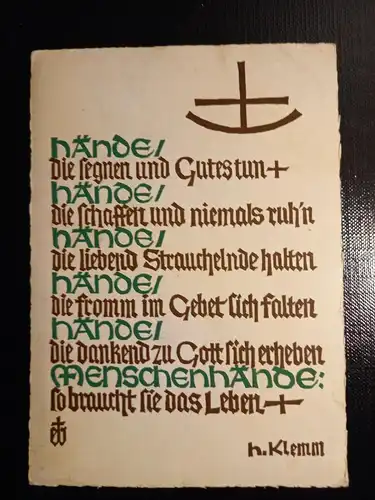 HÄNDE/
die segnen und Gutes tun +
HÄNDE/
die schaffen und niemals ruh'n
HÄNDE/
die liebend Strauchelnde halten
HÄNDE/
die fromm im Gebet sich falten
HÄNDE/
die dankend zu Gott sich erheben
MENSCHENHÄNDE:
so braucht sie das Leben +
h. Klemm